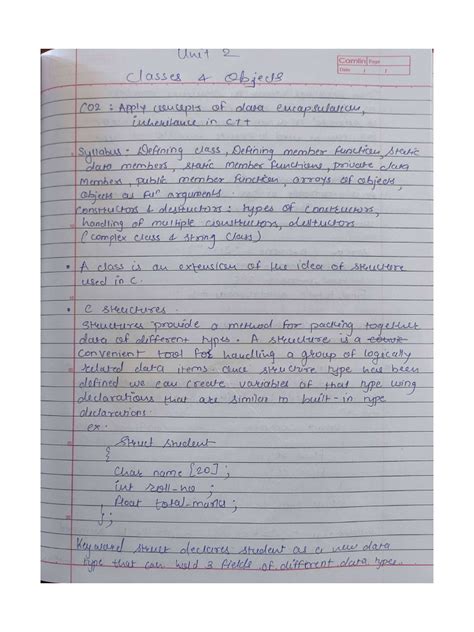 Unit 2
Camlin Page
Date / /
Classes & Objects
CO2 : Apply concepts of data encapsulation,
inheritance in C++
Syllabus - Defining class, Defining member function, static
data members, static member functions, private data
members, public member function, arrays of objects,
objects as fun arguments.
Constructors & destructors : types of constructors,
handling of multiple constructors, destructors
(complex class & string class)
• A class is an extension of the idea of structure
used in C.
• C structures.
Structures provide a method for packing together
data of different types. A structure is a
convenient tool for handling a group of logically
related data items. Once structure type has been
defined we can create variables of that type using
declarations that are similar to built-in type
declarations.
ex:
Struct student
{
Char name [20];
int roll-no;
float total-marks;
};
Keyword struct declares student as a new data
type that can hold 3 fields of different data types.